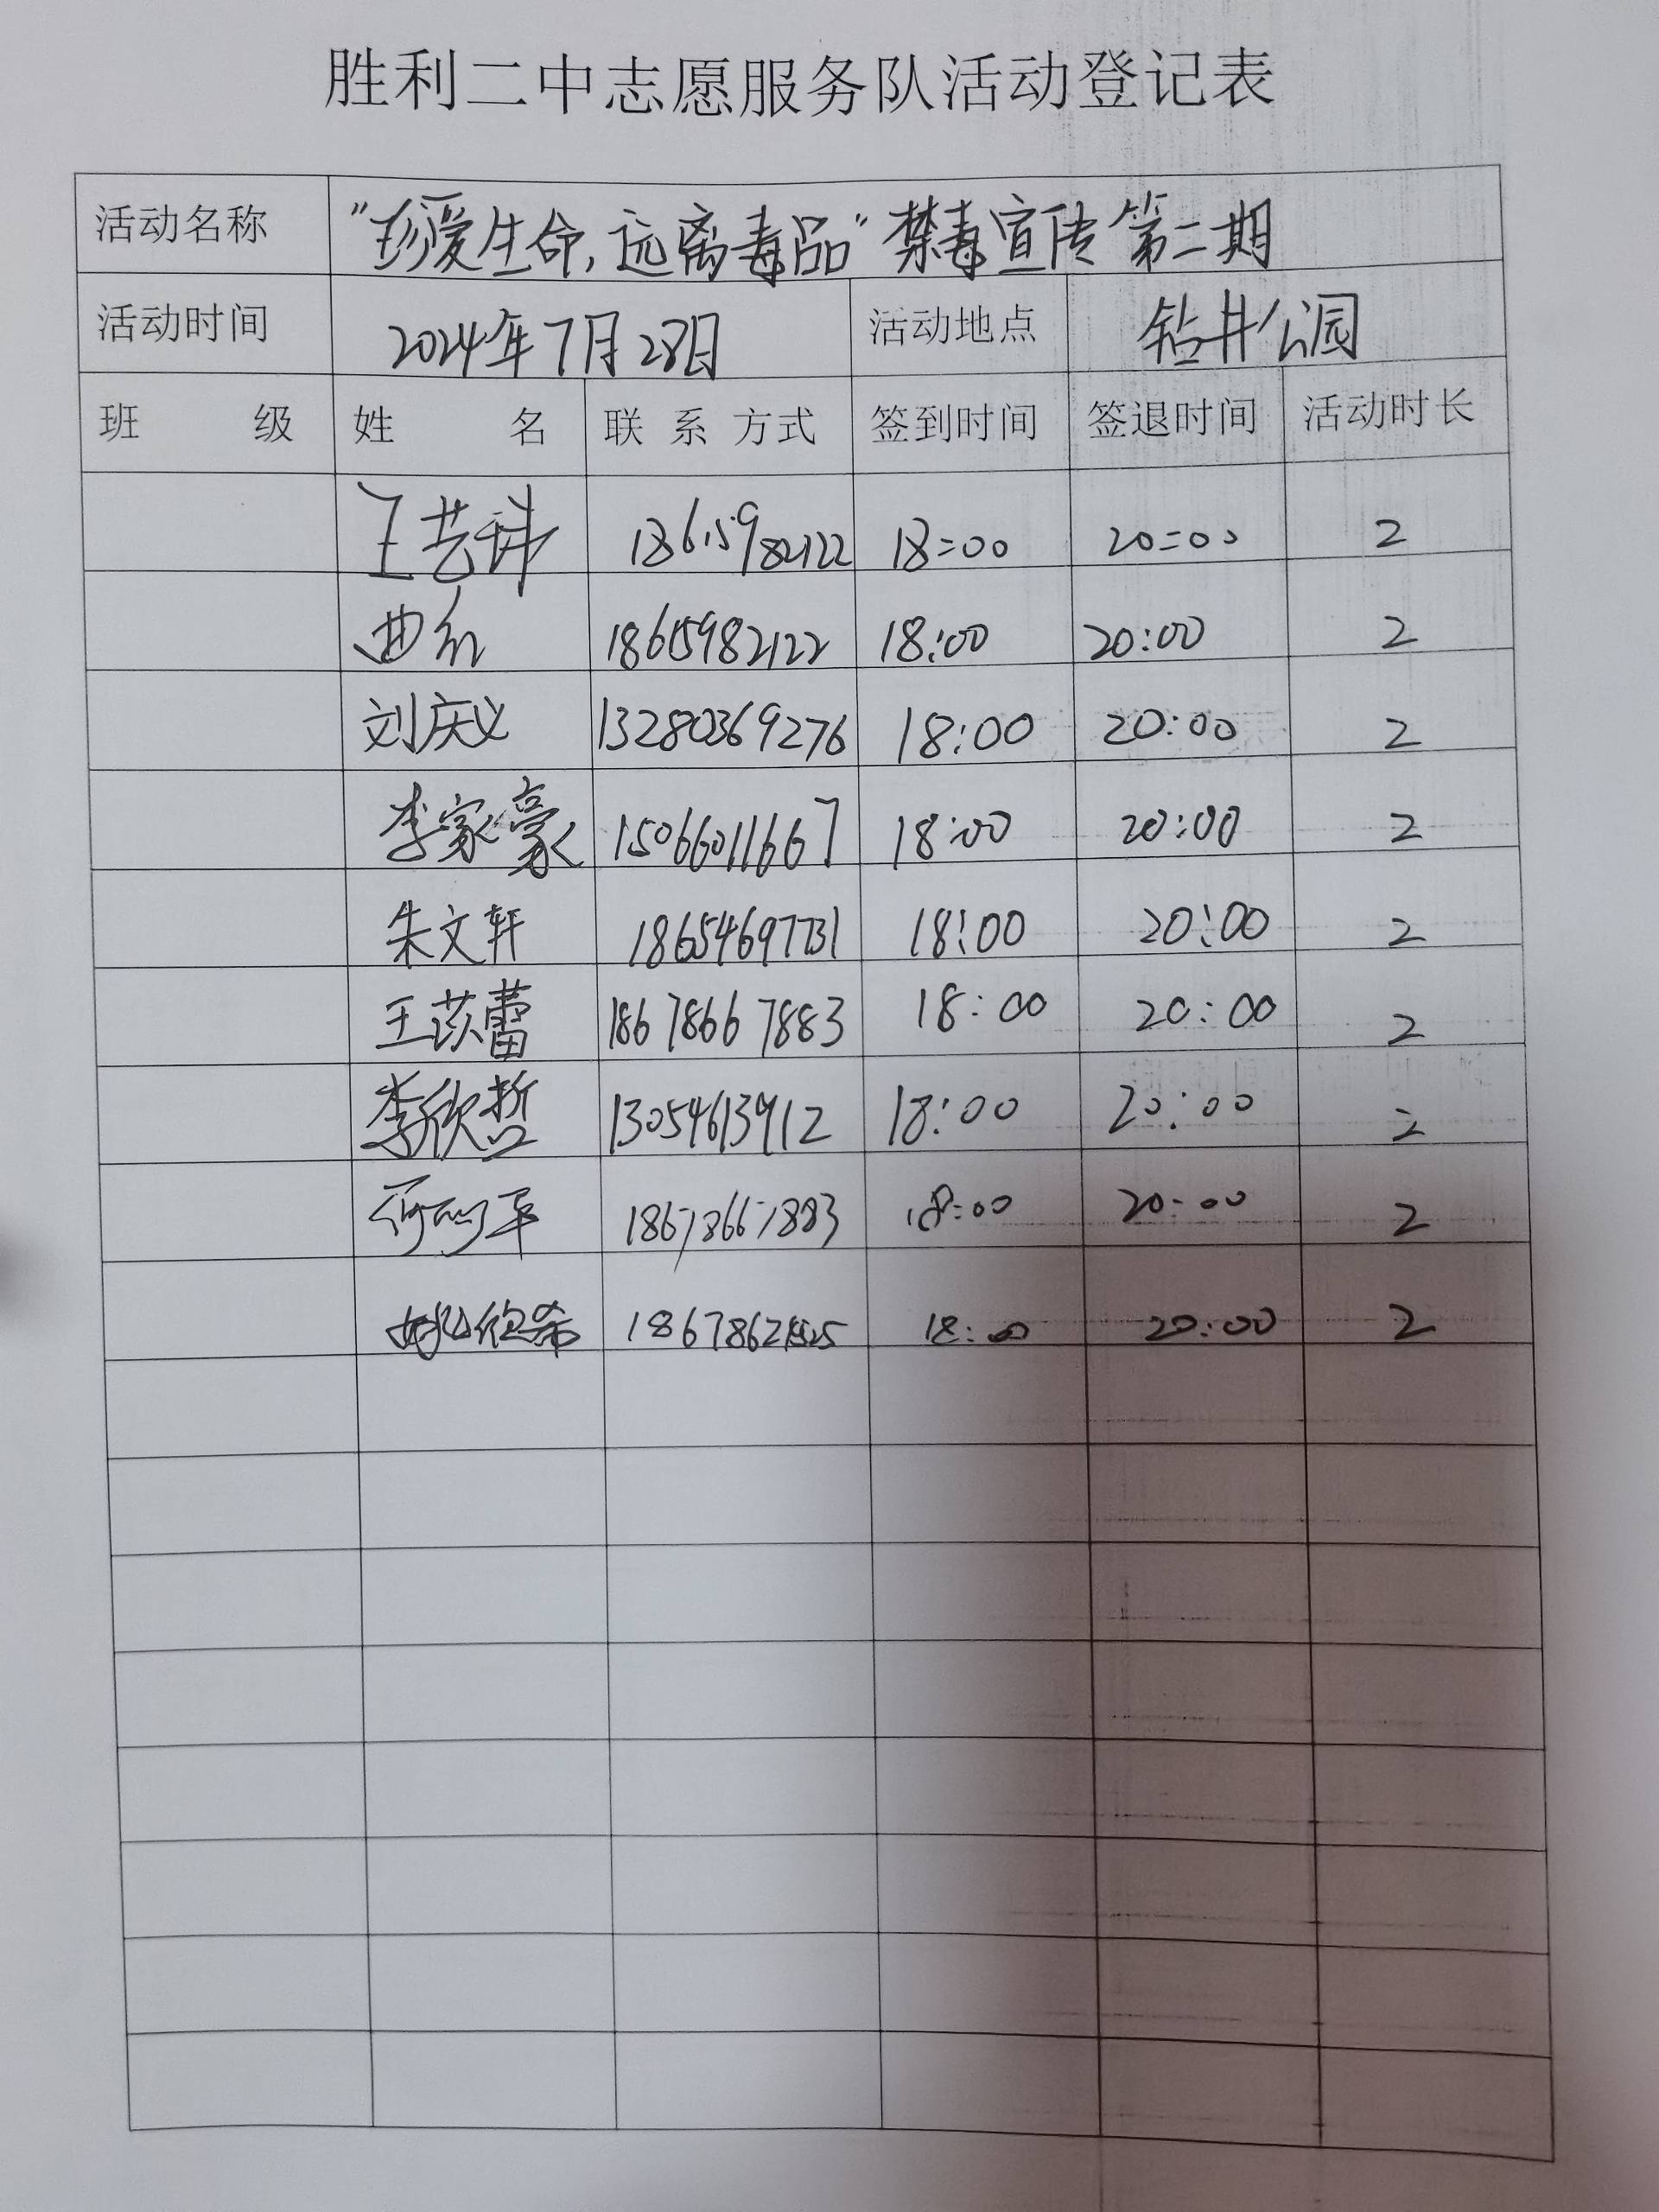 胜利二中志愿服务队活动登记表
活动名称 "珍爱生命,远离毒品"禁毒宣传第二期
活动时间 2024年7月28日 活动地点 钻井公园
班 级 姓 名 联系方式 签到时间 签退时间 活动时长
王艺 18615982122 18:00 20:00 2
曲 18615982122 18:00 20:00 2
刘庆义 13280369276 18:00 20:00 2
李家豪 15066011667 18:00 20:00 2
朱文轩 18654697731 18:00 20:00 2
王苡蕾 18678667883 18:00 20:00 2
李欣哲 13054613912 18:00 20:00 2
18678667883 18:00 20:00 2
姚欣希 18:00 20:00 2